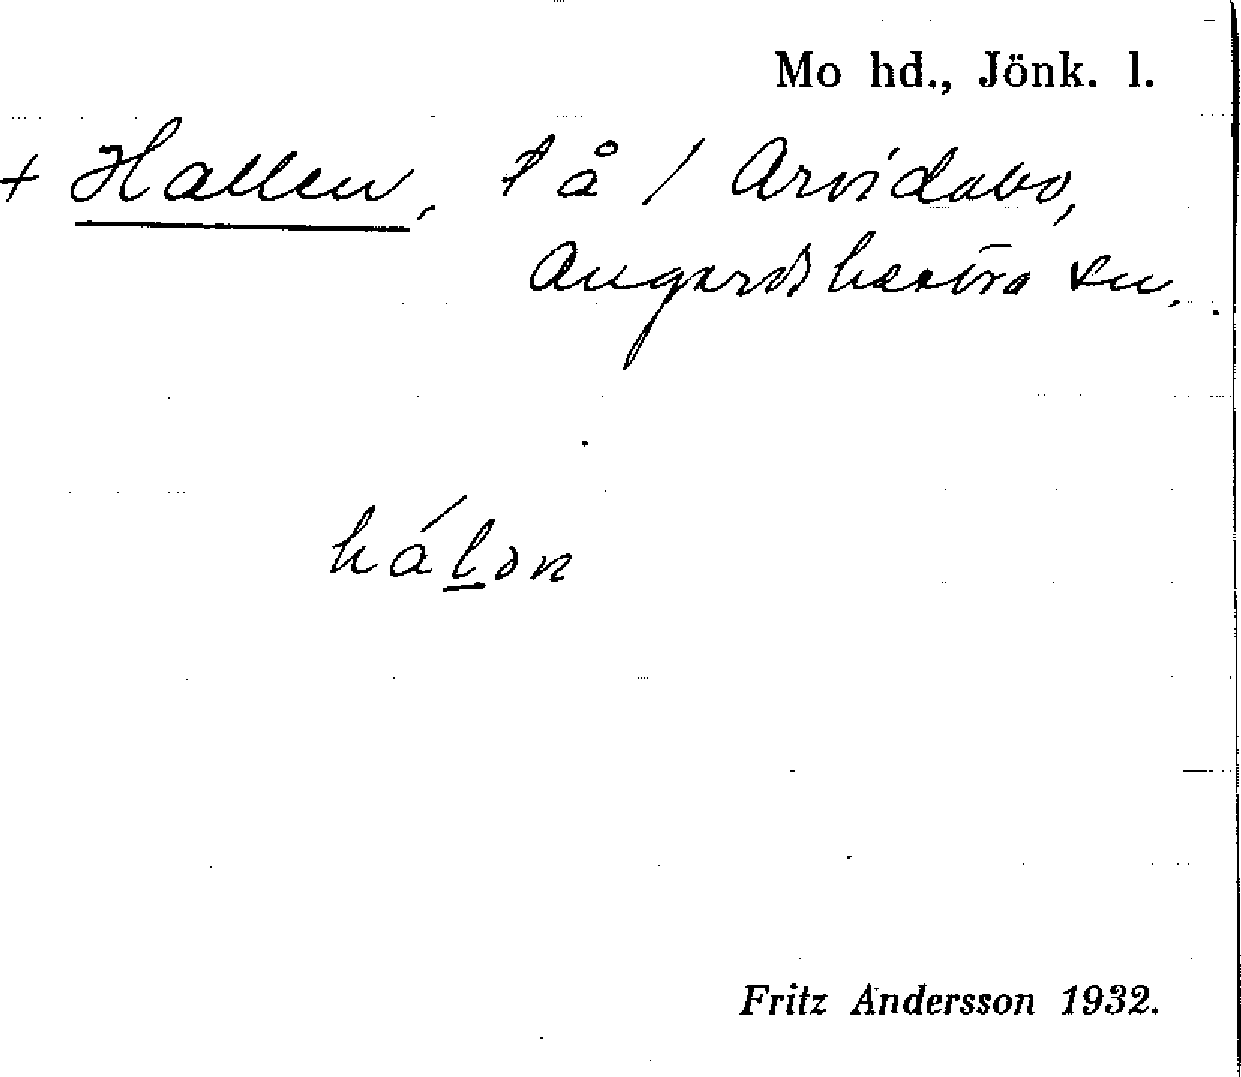 Mo hd., Jönk. l.
+ Hallen, få / Arvidabo,
Angerdshestra sn.
hálən
Fritz Andersson 1932.